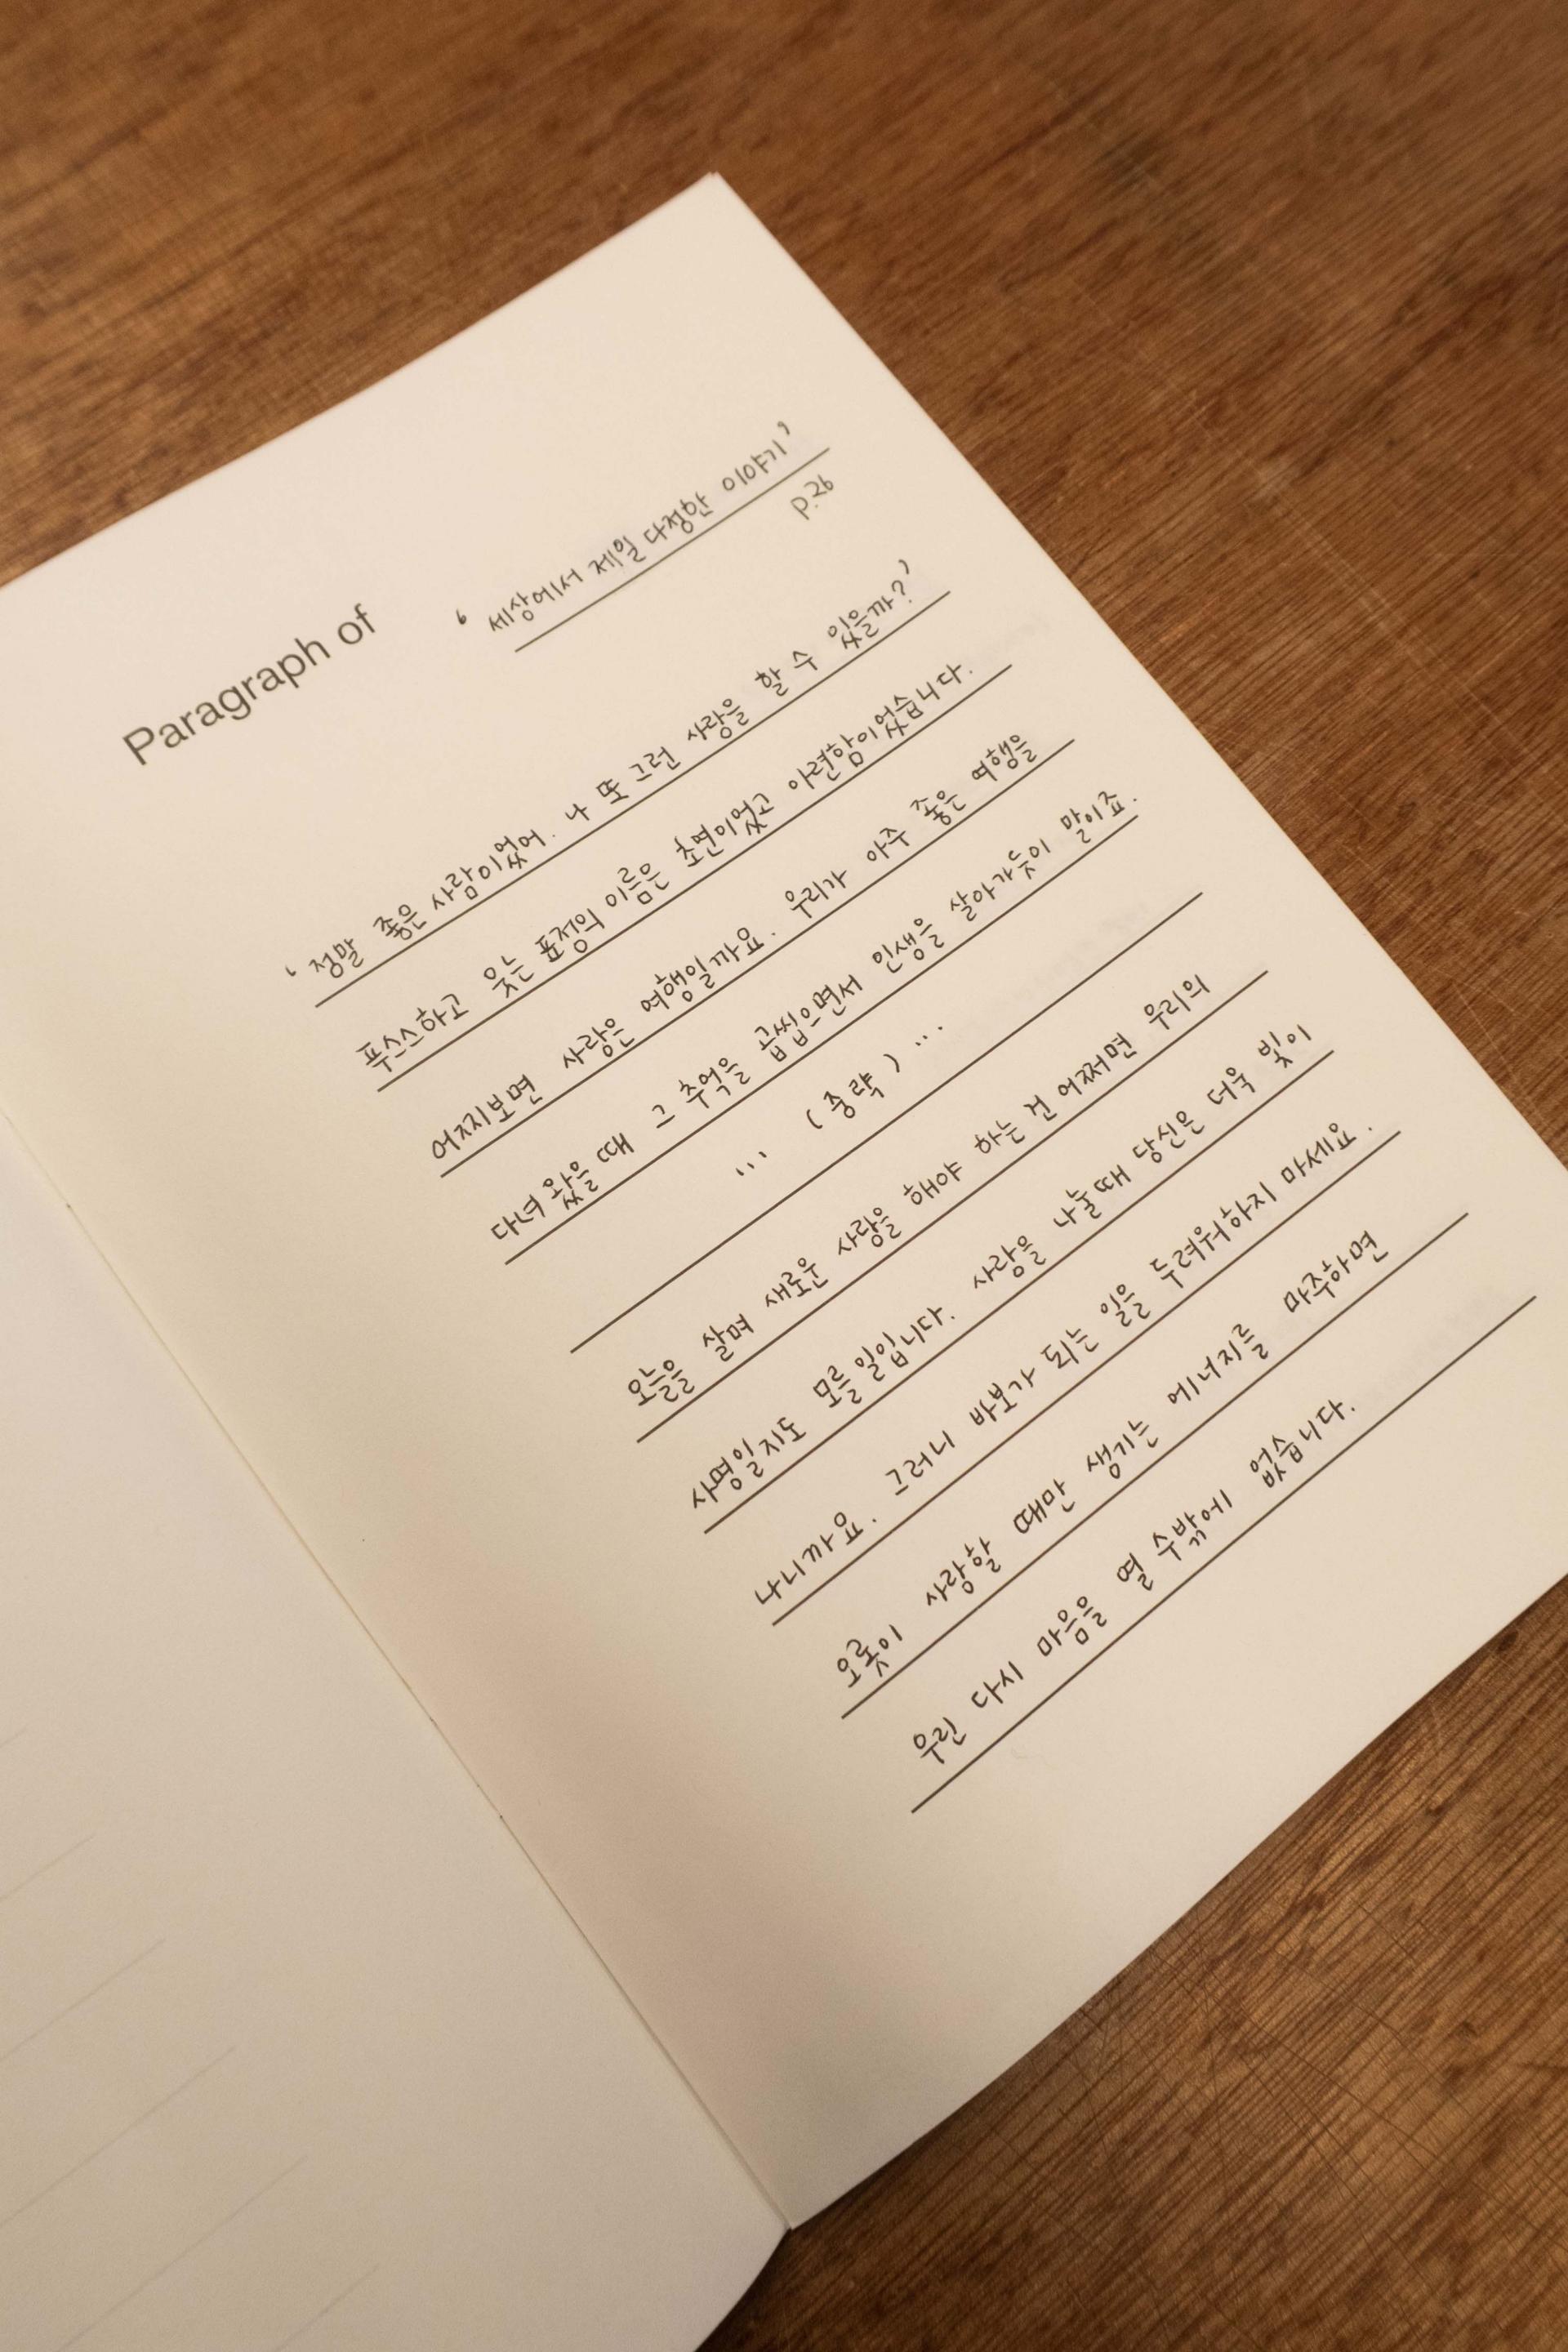 Paragraph of ‘세상에서 제일 다정한 이야기’
p.26
‘정말 좋은 사람이었어. 나 또 그런 사랑을 할 수 있을까?’
푸스스하고 웃는 표정의 이름은 초연이었고 아련함이었습니다.
어찌보면 사랑은 여행일까요. 우리가 아주 좋은 여행을
다녀 왔을 때 그 추억을 곱씹으면서 인생을 살아가듯이 말이죠.
... (중략) ...
오늘을 살며 새로운 사랑을 해야 하는 건 어쩌면 우리의
사명일지도 모를 일입니다. 사랑을 나눌때 당신은 더욱 빛이
나니까요. 그러니 바보가 되는 일을 두려워하지 마세요.
오롯이 사랑할 때만 생기는 에너지를 마주하면
우린 다시 마음을 열 수밖에 없습니다.